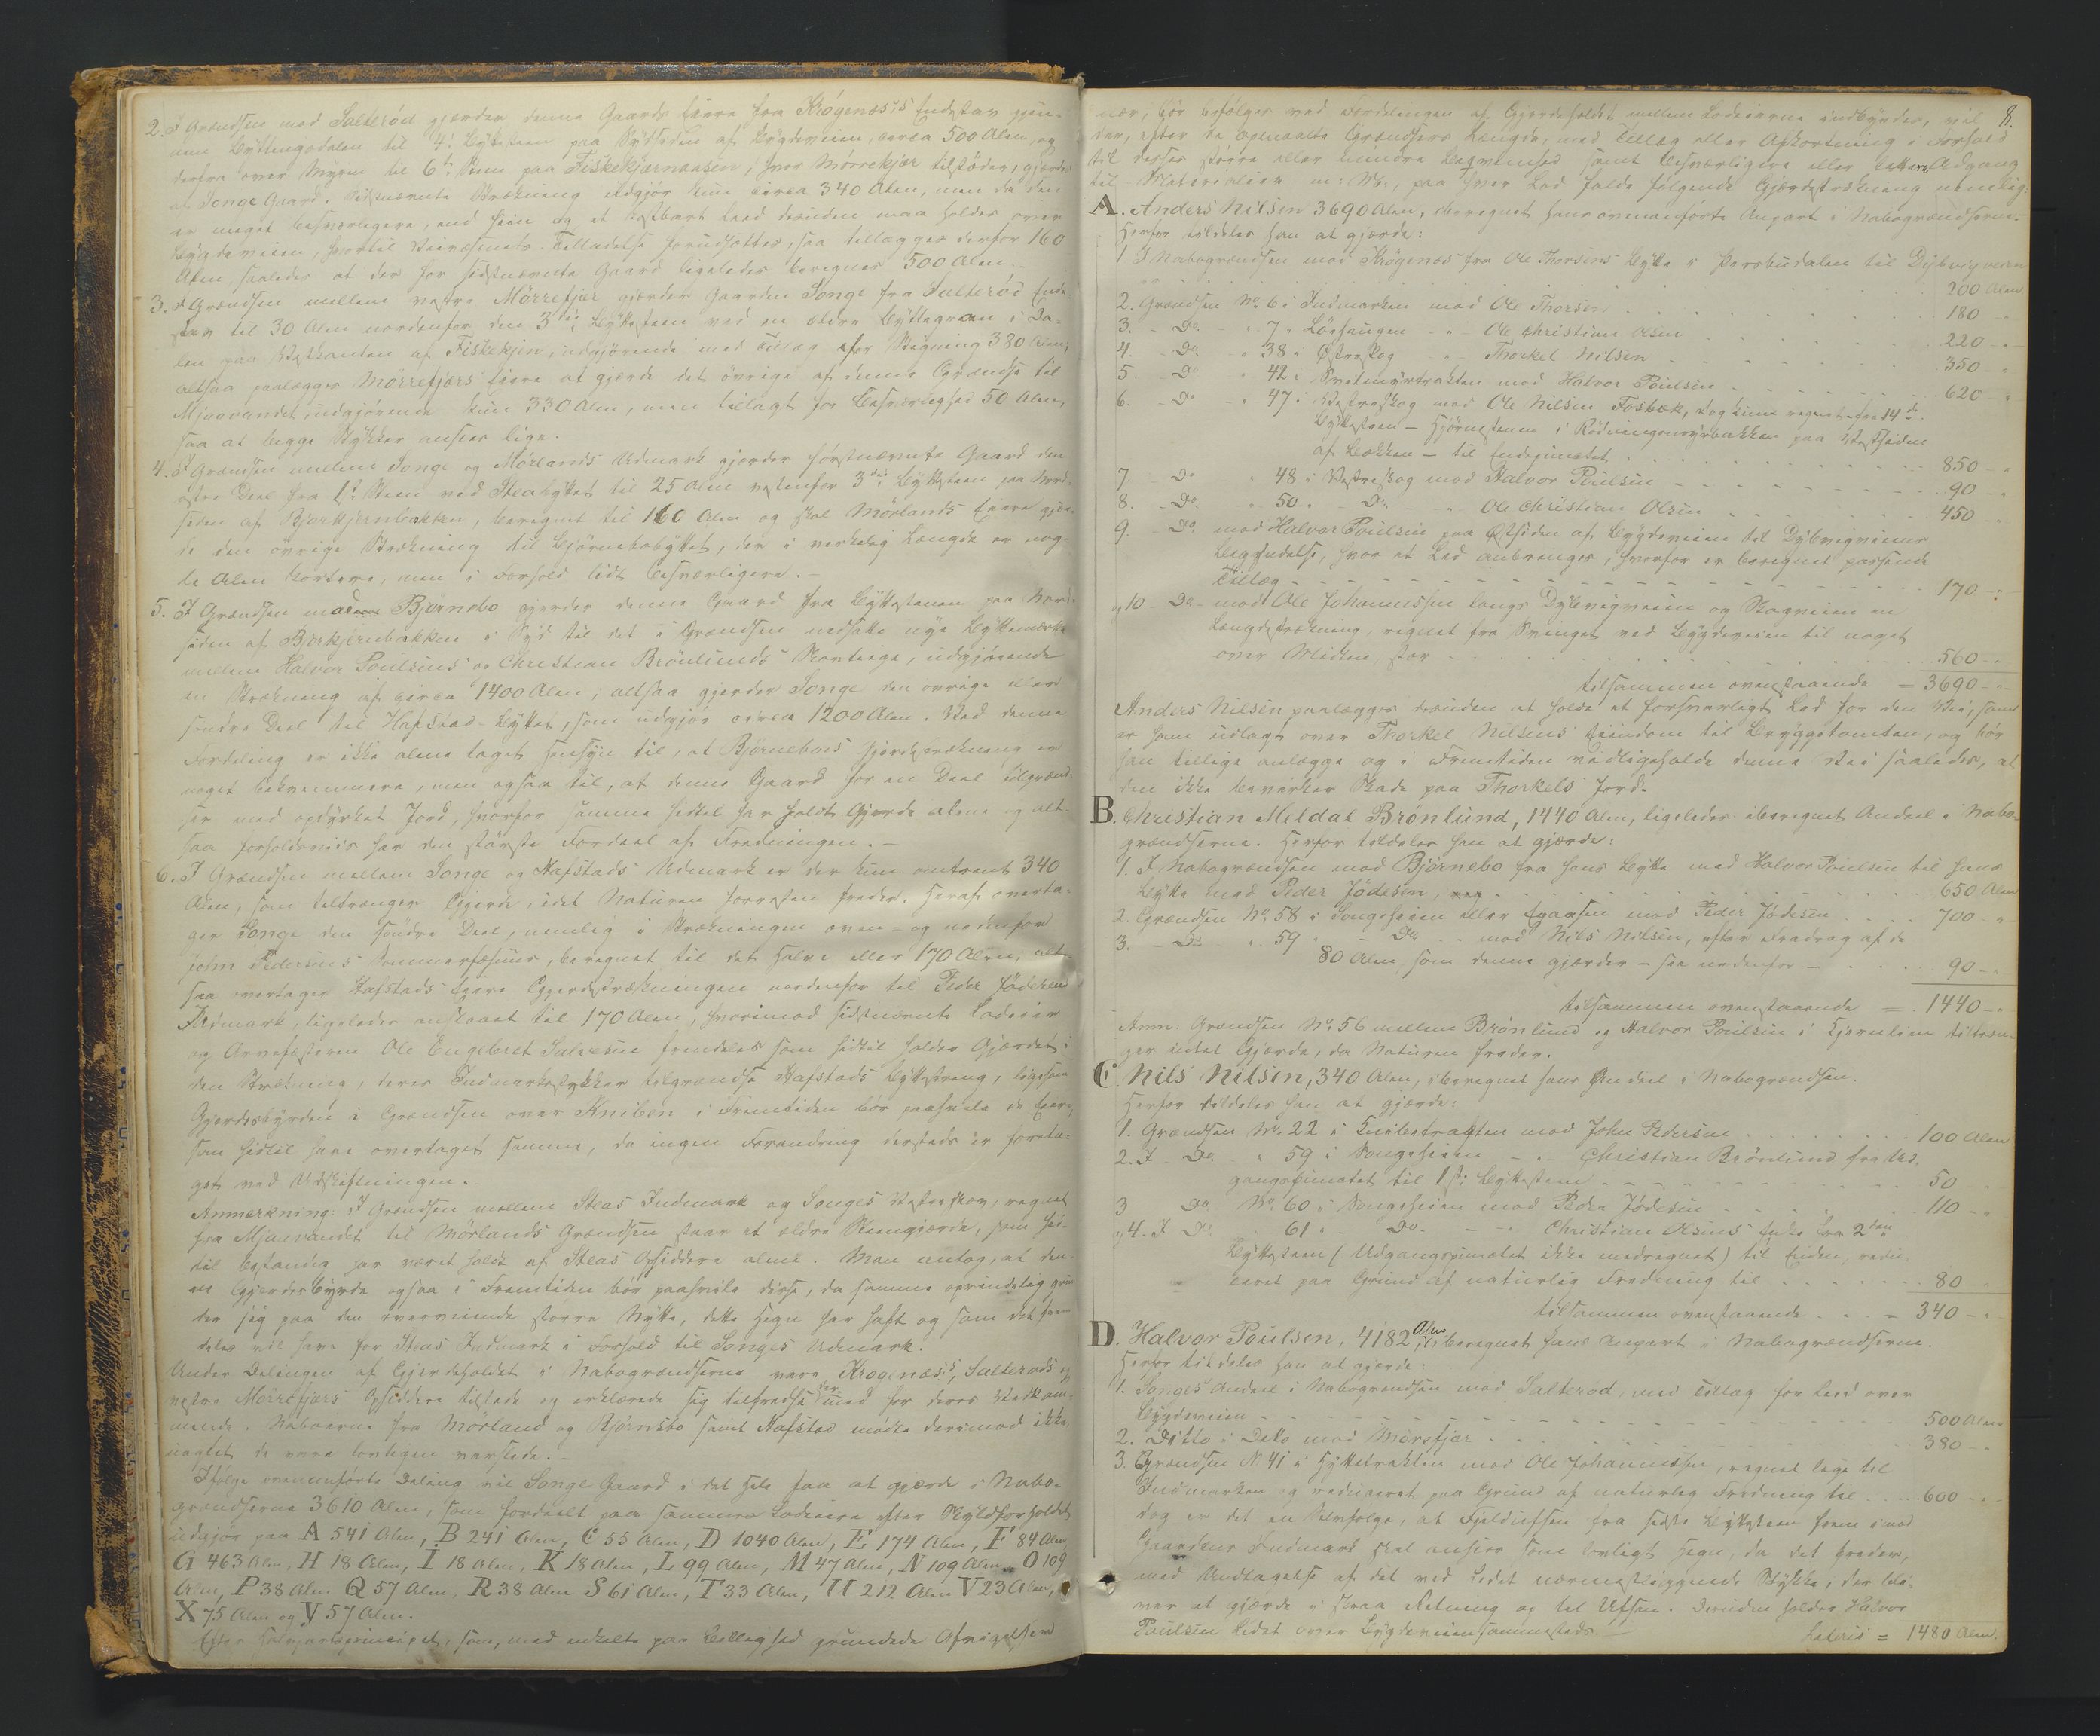 2. I Grændsen med Salterød gjærder denne Gaards Eiere fra Krøgenæs's Endestav gjen-
nem Byttingsdalen til 4. Byttesteen paa Sydsiden af Bygdeveien, circa 500 Alen, og
derfra over Myren til 6te Steen paa Fiskekjernaasen, hvor Mørrefjær tilstøder, gjærder
af Songe Gaard. Sidstnævnte Strækning udgjør kun circa 340 Alen, men da den
er meget besværligere, end hiin og et kostbart Leed desuden maa holdes over
Bygdeveien, hvortil Veivæsenets Tilladelse forudsættes, saa tillægges derfor 160
Alen saaledes at der for sidstnævnte Gaard ligeledes beregnes 500 Alen.
3. I Grændsen mellem vestre Mørrefjær gjærder Gaarden Songe fra Salterød Ende-
stav til 30 Alen nordenfor den 3die Byttesteen ved en større Byttegran i Da-
len paa Vestkanten af Fiskekjern, udgjørende med Tillæg efter Stigning 380 Alen,
altsaa paalægges Mørrefjærs Eiere at gjærde det øvrige af denne Grændse til
Mjaavandet, udgjørende kun 330 Alen, men tillagt for Besværlighed 50 Alen,
saa at begge Stykker ansees lige.
4. I Grændsen mellem Songe og Mørlands Udmark gjerder førstnævnte Gaard den
østre Deel fra 1ste Steen ved Steabyttet til 25 Alen vestenfor 3die Byttesteen paa Nord-
siden af Bjorkjernbækken, beregnet til 160 Alen og skal Mørlands Eiere gjær-
de den øvrige Strækning til Bjørnebobyttet, der i virkelig Længde er nog-
le Alen kortere, men i Forhold lidt besværligere.—
5. I Grændsen mod Bjørnebo gjerder denne Gaard fra Byttestenen paa Nord-
siden af Bjorkjernbækken i Syd til det i Grændsen nedsatte nye Byttemærke
mellem Halvor Poulsens og Christian Brönlunds Skovteige, udgjørende
en Strækning af circa 1400 Alen; altsaa gjerder Songe den øvrige eller
søndre Deel til Hafstad-Byttet, som udgjør circa 1200 Alen. Ved denne
Fordeling er ikke alene taget Hensyn til, at Bjørneboes Gjerdestrækning er
noget bekvemmere, men ogsaa til, at denne Gaard for en Deel tilgrænd-
ser med opdyrket Jord, hvorfor samme hidtil har holdt Gjerde alene og alt-
saa forholdsviis har den største Fordeel af Fredningen.—
6. I Grændsen mellem Songe og Hafstads Udmark er der kun omtrent 340
Alen, som tiltrænger Gjerde, idet Naturen forresten freder. Heraf overta-
ger Songe den søndre Deel, nemlig i Strækningen oven- og nedenfor
John Pedersens Sommerfæhuus, beregnet til det halve eller 170 Alen, alt-
saa overtager Hafstads Eiere Gjerdestrækningen nordenfor til Peder Jödesens
Indmark, ligeledes anslaaet til 170 Alen, hvorimod sidstnævnte Lodeier
og Arvefæsteren Ole Engebret Salvesen fremdeles som hidtil holder Gjærdet i
den Strækning, deres Indmarksstykker tilgrændse Hafstads Byttestreng, ligesom
Gjerdesbyrden i Grændsen over Kniben i Fremtiden bør paahvile de Eiere,
som hidtil have overtaget samme, da ingen Forandring dersteds er foreta-
get ved Udskiftningen.—
Anmærkning: I Grændsen mellem Steas Indmark og Songes Vestreskov, regnet
fra Mjaavandet til Mørlands Grændsen staar et ældre Steengjærde, som hid-
til bestandig har været holdt af Steas Opsiddere alene. Man antog, at den-
ne Gjerdesbyrde ogsaa i Fremtiden bør paahvile disse, da samme oprindelig grun-
der sig paa den overveiende større Nytte, dette Hegn har haft og som det frem-
deles vil have for Steas Indmark i Forhold til Songes Udmark.
Under Delingen af Gjerdeholdet i Nabogrændserne vare Krøgenæs's, Salterøds og
vestre Mørrefjærs Opsiddere tilstede og erklærede sig tilfredse her med for deres Vedkom-
mende. Naboerne fra Mørland og Bjørnebo samt Hafstad mødte derimod ikke,
uagtet de vare lovligen varslede.—
Ifølge ovenanførte Deling vil Songe Gaard i det Hele faa at gjærde i Nabo-
grændserne 3610 Alen, som fordeelt paa sammes Lodeiere efter Skyldforholdet
udgjør paa A 541 Alen, B 241 Alen, C 55 Alen, D 1040 Alen, E 174 Alen, F 84 Alen,
G 463 Alen, H 18 Alen, I 18 Alen, K 18 Alen, L 99 Alen, M 47 Alen, N 109 Alen, O 109
Alen, P 38 Alen, Q 57 Alen, R 38 Alen S 61 Alen, T 33 Alen, U 212 Alen V 23 Alen,
X 75 Alen og Y 57 Alen.
Efter Halvpartsprincipet, som, med enkelte paa Billighed grundede Afvigelser
8.
nær, bør befølges ved Fordelingen af Gjerdeholdet mellem Lodeierne indbyrdes, vil
der, efter de opmaalte Grændsers Længde, med Tillæg eller Afkortning i Forhold
til disses større eller mindre Bekvemhed samt besværligere eller lettere Adgang
til Materialier m: M:, paa hver Lod falde følgende Gjærdestrækning nemlig:
A. Anders Nilsen 3690 Alen, iberegnet hans ovenanførte Anpart i Nabogrændserne.
Herfor tildeles han at gjærde:
1 I Nabogrændsen mod Krøgenæs fra Ole Thorsens Bytte i Perebudalen til Dybvigveien
. . . 200 Alen
2. Grændsen No. 6 i Indmarken mod Ole Thorsen . . . 180 - "
3. - Do. - " 7 " Löehaugen - " - Ole Christian Olsen . . . 220 - "
4. - Do. " 38 i Østreskog - " - Thorkel Nilsen . . . 350 - "
5. - Do " 42 " Svitmyrtrakten mod Halvor Poulsen . . . 620 - "
6. - Do " 47 i Vestreskog mod Ole Nilsen Fosbæk, dog kun regnet fra 14de
Byttesteen — Hjörnestenen i Rödningsmyrbakken paa Vestsiden
af Bækken — til Endepunctet . . . 850 - "
7. - Do " 48 i Vestreskog mod Halvor Poulsen . . . 90 "
8. - Do. " 50 " - Do. - " Ole Christian Olsen . . . 450
9. - Do. mod Halvor Poulsen paa Østsiden af Bygdeveien til Dybvigveiens
Begyndelse, hvor et Led anbringes, hvorfor er beregnet passende
Tillæg . . . 170 - "
og 10 - Do - mod Ole Johannessen langs Dybvigveien og Skogveien en
Længdestrækning, regnet fra Svinget ved Bygdeveien til noget
over Midten, stor . . . 560 - "
tilsammen ovenstaaende = 3690 - "
Anders Nilsen paalægges desuden at holde et forsvarligt Led for den Vei, som
er ham udlagt over Thorkel Nilsens Eiendom til Bryggetomten, og bör
han tillige anlægge og i Fremtiden vedligeholde denne Vei saaledes, at
den ikke bevirker Skade paa Thorkels Jord.
B. Christian Meldal Brønlund, 1440 Alen, ligeledes iberegnet Andeel i Nabo-
grændserne. Herfor tildeles han at gjærde:
1. I Nabogrændsen mod Björnebo fra hans Bytte med Halvor Poulsen til hans
Bytte med Peder Jödesen, . . . 650 Alen
2. Grændsen No. 58 i Songeheien eller Egaasen mod Peder Jödesen . . . 700 - "
3. - Do - " 59 - Do. - " mod Nils Nilsen, efter Fradrag af de
80 Alen, som denne gjærder — see nedenfor — . . . 90 - "
tilsammen ovenstaaende = 1440 - "
Anm: Grændsen No. 56 mellem Brønlund og Halvor Poulsen i Kjernlien tiltræn-
ger intet Gjærde, da Naturen freder.
C Nils Nilsen, 340 Alen, iberegnet hans Andeel i Nabogrændsen.
Herfor tildeles han at gjærde:
1. Grændsen No. 22 i Knibetrakten mod John Pedersen . . . 100 Alen
2. I - Do. - " 59 i Songeheien - " - Christian Brönlund fra Ud-
gangspunctet til 1ste Byttesteen . . . 50 "
3 Do No. 60 i Songeheien mod Peder Jödesen . . . 110 - "
og 4. I Do. 61 " - Do. - " - Christian Olsens Enke fra 2den
Byttesteen (Udgangspunctet ikke medregnet) til Enden, redu-
ceret paa Grund af naturlig Fredning til . . . 80
tilsammen ovenstaaende . . . = 340 - "
D. Halvor Poulsen, 4182 Alen, iberegnet hans Anpart i Nabogrændserne.
Herfor tildeles han at gjærde:
1. Songes Andeel i Nabogrændsen mod Salterød, med Tillæg for Leed over
Bygdeveien . . . 500 Alen
2. Ditto i Ditto mod Mörefjær . . . 380 - "
3. Grændsen No 41 i Hyttetrakten mod Ole Johannessen, regnet lige til
Indmarken og reduceret paa Grund af naturlig Fredning til . . . 600 - "
dog er det en Selvfølge, at Fjeldufsen fra sidste Byttesteen frem imod
Gaardens Indmark skal ansees som lovligt Hegn, da det freder,
med Undtagelse af det ved Ledet nærmestliggende Stykke, der bli-
ver at gjærde i skraa Retning og til Ufsen. Desuden holder Halvor
Poulsen Ledet over Bygdeveien sammesteds.—
Lateris = 1480 Alen.